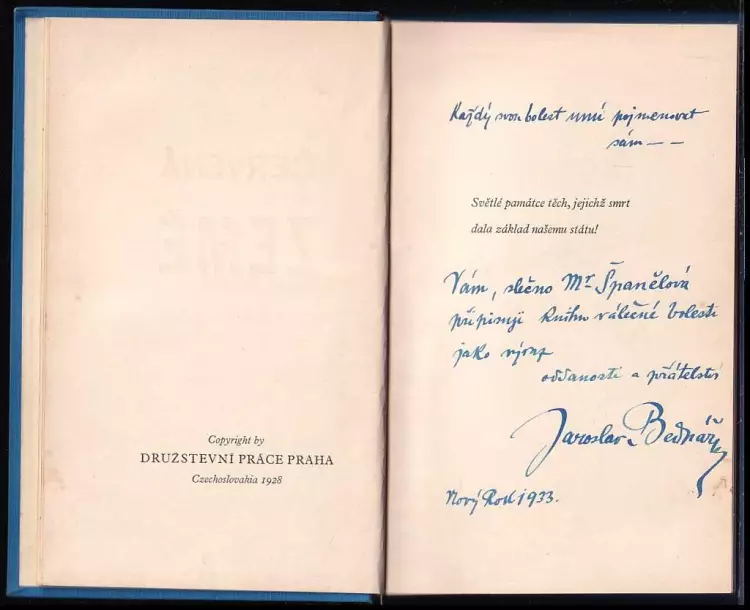 ČERVENÁ
ZEMĚ
Copyright by
DRUŽSTEVNÍ PRÁCE PRAHA
Czechoslovakia 1928
Každý svou bolest umí pojmenovat
sám — —
Světlé památce těch, jejichž smrt
dala základ našemu státu!
Vám, slečno Mr Španělová
připisuji knihu válečné bolesti
jako výraz
oddanosti a přátelství
Jaroslav Bednář
Nový Rok 1933.